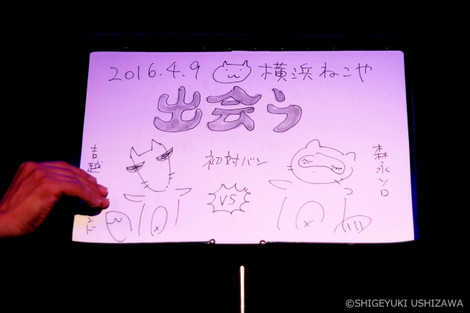 2016.4.9 横浜ねこや
出会う
初対バン
VS
吉越
森永ソロ
©SHIGEYUKI USHIZAWA